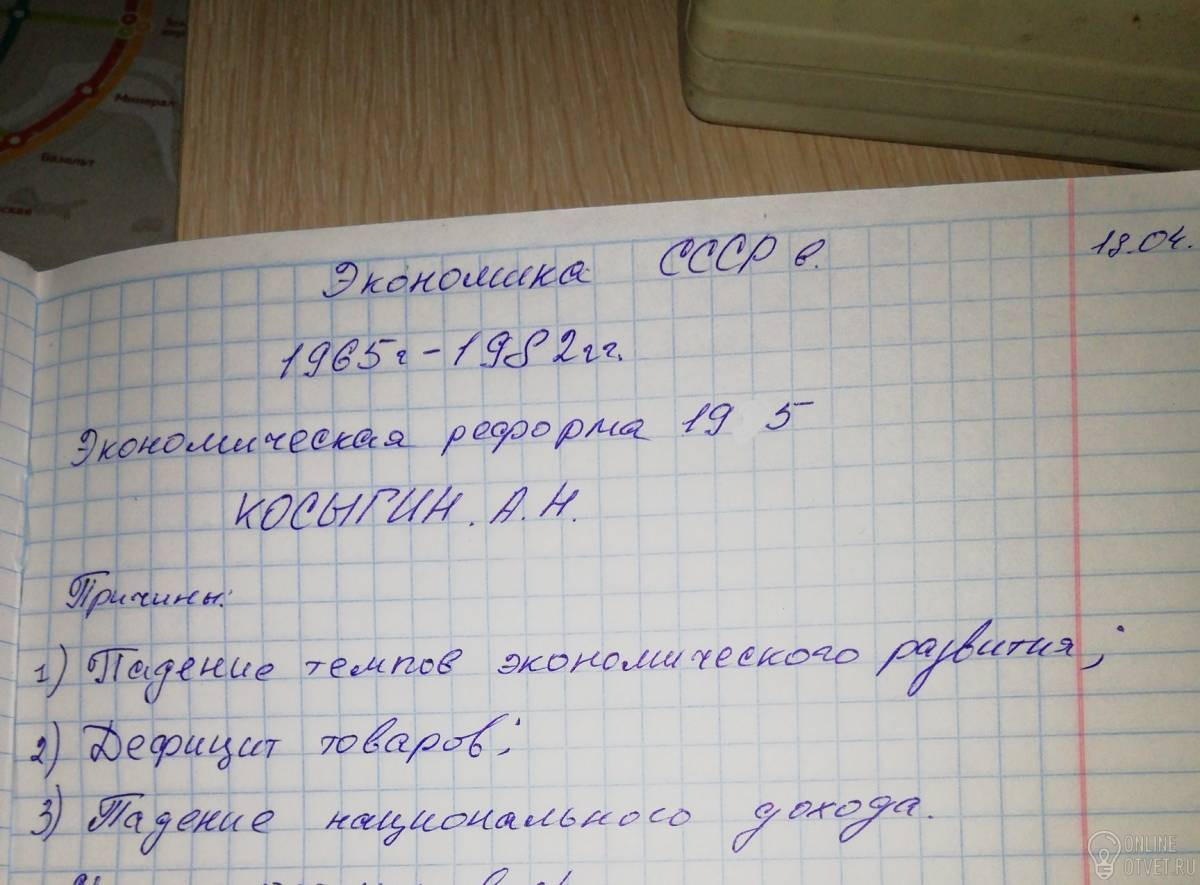 Минерал
Базальт
ская
Экономика СССР в.
18.04.
1965г-1982гг.
Экономическая реформа 19 5
КОСЫГИН. А.Н.
Причины:
1) Падение темпов экономического развития;
2) Дефицит товаров;
3) Падение национального дохода.
ONLINE
OTVET.RU